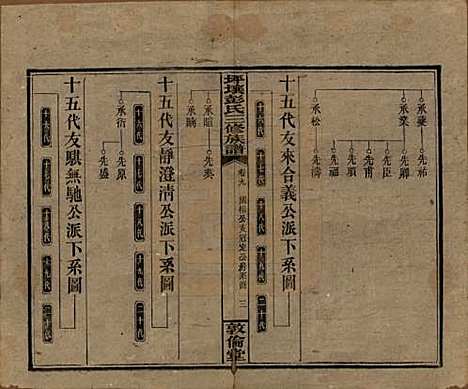 承蘷
先祁
承業
先卿
先臣
先甫
先福
先順
承松
先濤
十五代友來合義公派下系圖
十六代
十七代
十八代
十九代
二十代
坪壤彭氏三修族譜
卷九
敦倫堂
承暄
先奏
承晴
十五代友靜澄清公派下系圖
十六代
十七代
十八代
十九代
二十代
承衍
先原
先盛
十五代友騏無馳公派下系圖
十六代
十七代
十八代
十九代
二十代